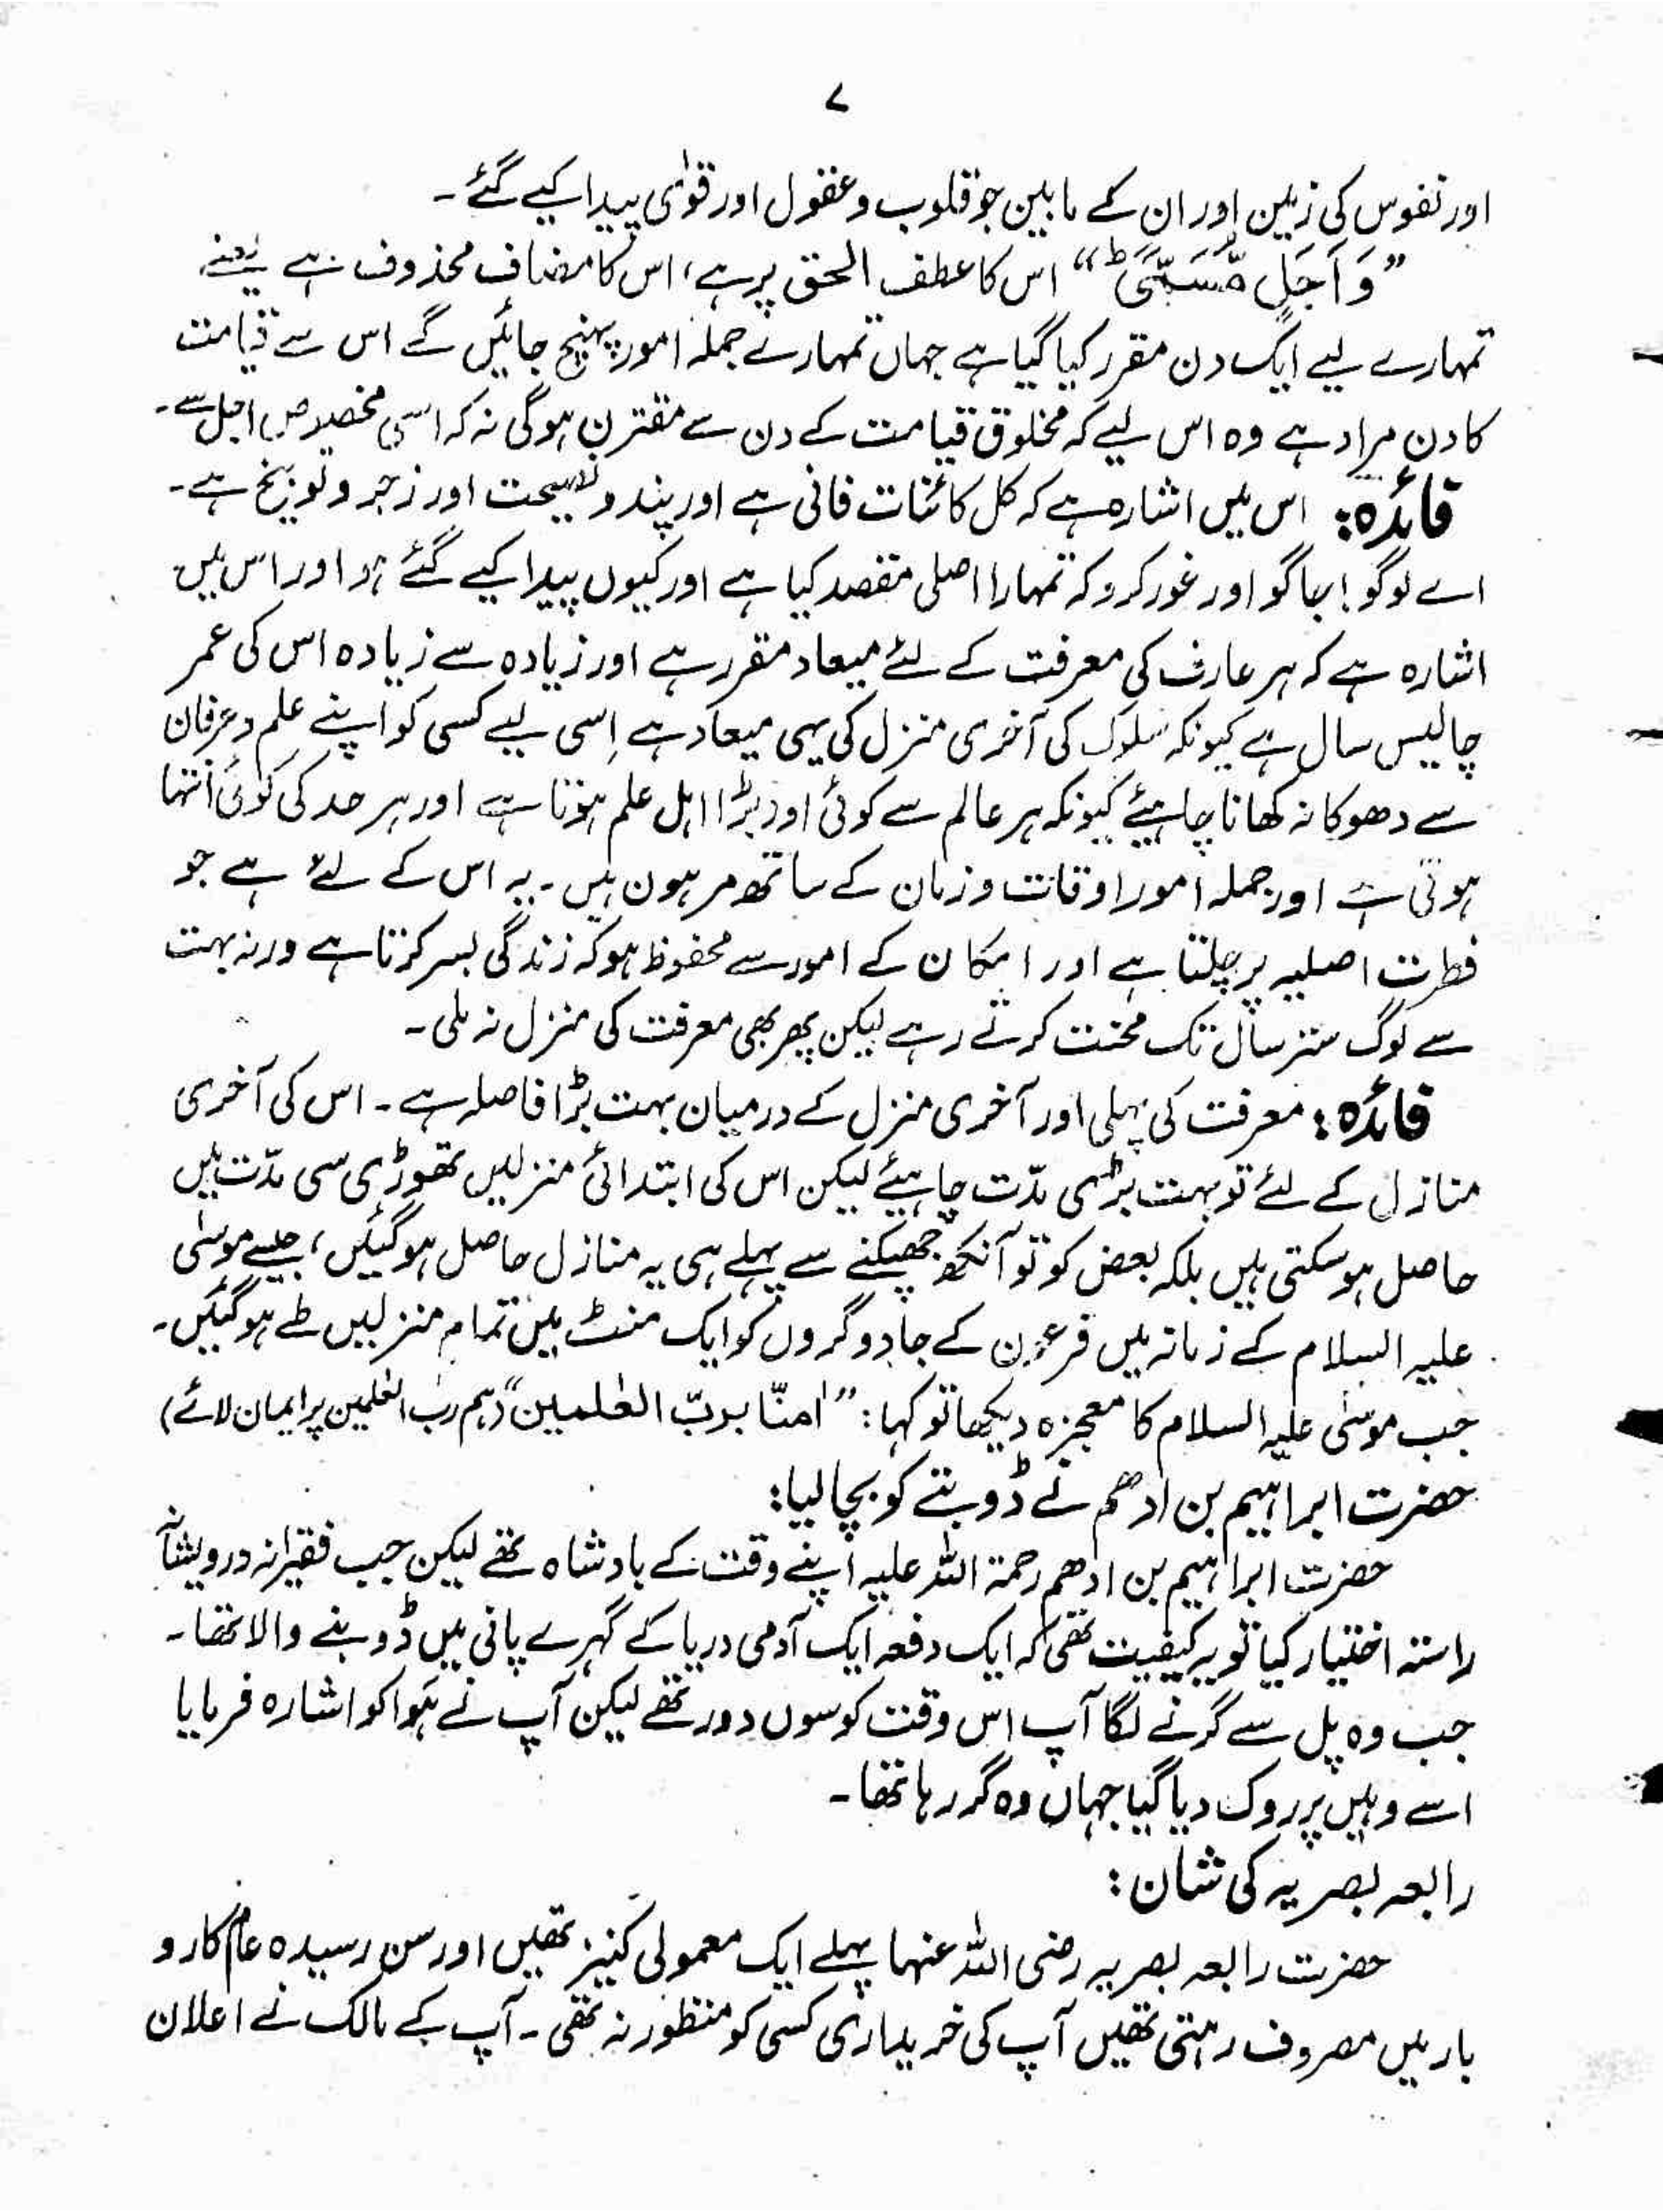 ۷
اور نفوس کی زمین اور ان کے مابین جو قلوب و عقول اور قوٰی پیدا کیے گئے ۔
”وَ اَجَلٍ مُّسَمًّی ؕ“ اس کا عطف الحق پر ہے، اس کا مضاف محذوف ہے یعنے
تمہارے لیے ایک دن مقرر کیا گیا ہے جہاں تمہارے جملہ امور پہنچ جائیں گے اس سے قیامت
کا دن مراد ہے وہ اس لیے کہ مخلوق قیامت کے دن سے مقترن ہوگی نہ کہ اسی مخصوص اجل سے۔
فائدہ: اس میں اشارہ ہے کہ کل کائنات فانی ہے اور پند و نصیحت اور زجر و توبیخ ہے۔
اے لوگو! جاگو اور غور کرو کہ تمہارا اصلی مقصد کیا ہے اور کیوں پیدا کیے گئے ہو اور اس میں
اشارہ ہے کہ ہر عارف کی معرفت کے لئے میعاد مقرر ہے اور زیادہ سے زیادہ اس کی عمر
چالیس سال ہے کیونکہ سلوک کی آخری منزل کی یہی میعاد ہے اِسی لیے کسی کو اپنے علم و عرفان
سے دھوکا نہ کھانا چاہیئے کیونکہ ہر عالم سے کوئی اور بڑا اہل علم ہوتا ہے اور ہر حد کی کوئی انتہا
ہوتی ہے اور جملہ امور اوقات و زمان کے ساتھ مرہون ہیں۔ یہ اس کے لئے ہے جو
فطرت اصلیہ پر چلتا ہے اور امکان کے امور سے محفوظ ہو کہ زندگی بسر کرتا ہے ورنہ بہت
سے لوگ ستر سال تک محنت کرتے رہے لیکن پھر بھی معرفت کی منزل نہ ملی ۔
فائدہ: معرفت کی پہلی اور آخری منزل کے درمیان بہت بڑا فاصلہ ہے ۔ اس کی آخری
منازل کے لئے تو بہت بڑی مدّت چاہیئے لیکن اس کی ابتدائی منزلیں تھوڑی سی مدّت میں
حاصل ہو سکتی ہیں بلکہ بعض کو تو آنکھ جھپکنے سے پہلے ہی یہ منازل حاصل ہوگئیں، جیسے موسٰی
علیہ السلام کے زمانہ میں فرعون کے جادوگروں کو ایک منٹ میں تمام منزلیں طے ہوگئیں۔
جب موسٰی علیہ السلام کا معجزہ دیکھا تو کہا: ”اٰمنّا بربّ العٰلمین“ (ہم رب العٰلمین پر ایمان لائے)
حضرت ابراہیم بن ادھم نے ڈوبتے کو بچا لیا:
حضرت ابراہیم بن ادھم رحمۃ اللہ علیہ اپنے وقت کے بادشاہ تھے لیکن جب فقیرانہ درویشانہ
راستہ اختیار کیا تو یہ کیفیت تھی کہ ایک دفعہ ایک آدمی دریا کے گہرے پانی میں ڈوبنے والا تھا۔
جب وہ پل سے گرنے لگا آپ اس وقت کوسوں دور تھے لیکن آپ نے ہَوا کو اشارہ فرمایا
اسے وہیں پر روک دیا گیا جہاں وہ گر رہا تھا ۔
رابعہ بصریہ کی شان:
حضرت رابعہ بصریہ رضی اللہ عنہا پہلے ایک معمولی کنیز تھیں اور سن رسیدہ عام کار و
بار میں مصروف رہتی تھیں آپ کی خریداری کسی کو منظور نہ تھی ۔ آپ کے مالک نے اعلان